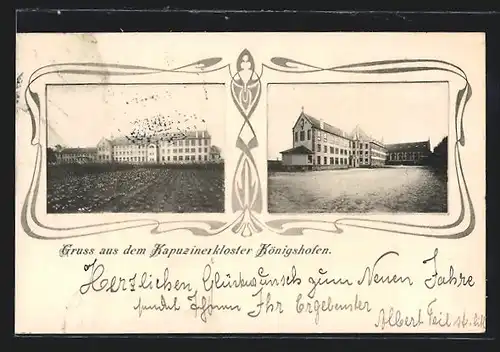 Gruss aus dem Kapuzinerkloster Königshofen.
Herzlichen Glückwunsch zum Neuen Jahre
sendet Ihnen Ihr Ergebenster
Albert Feil